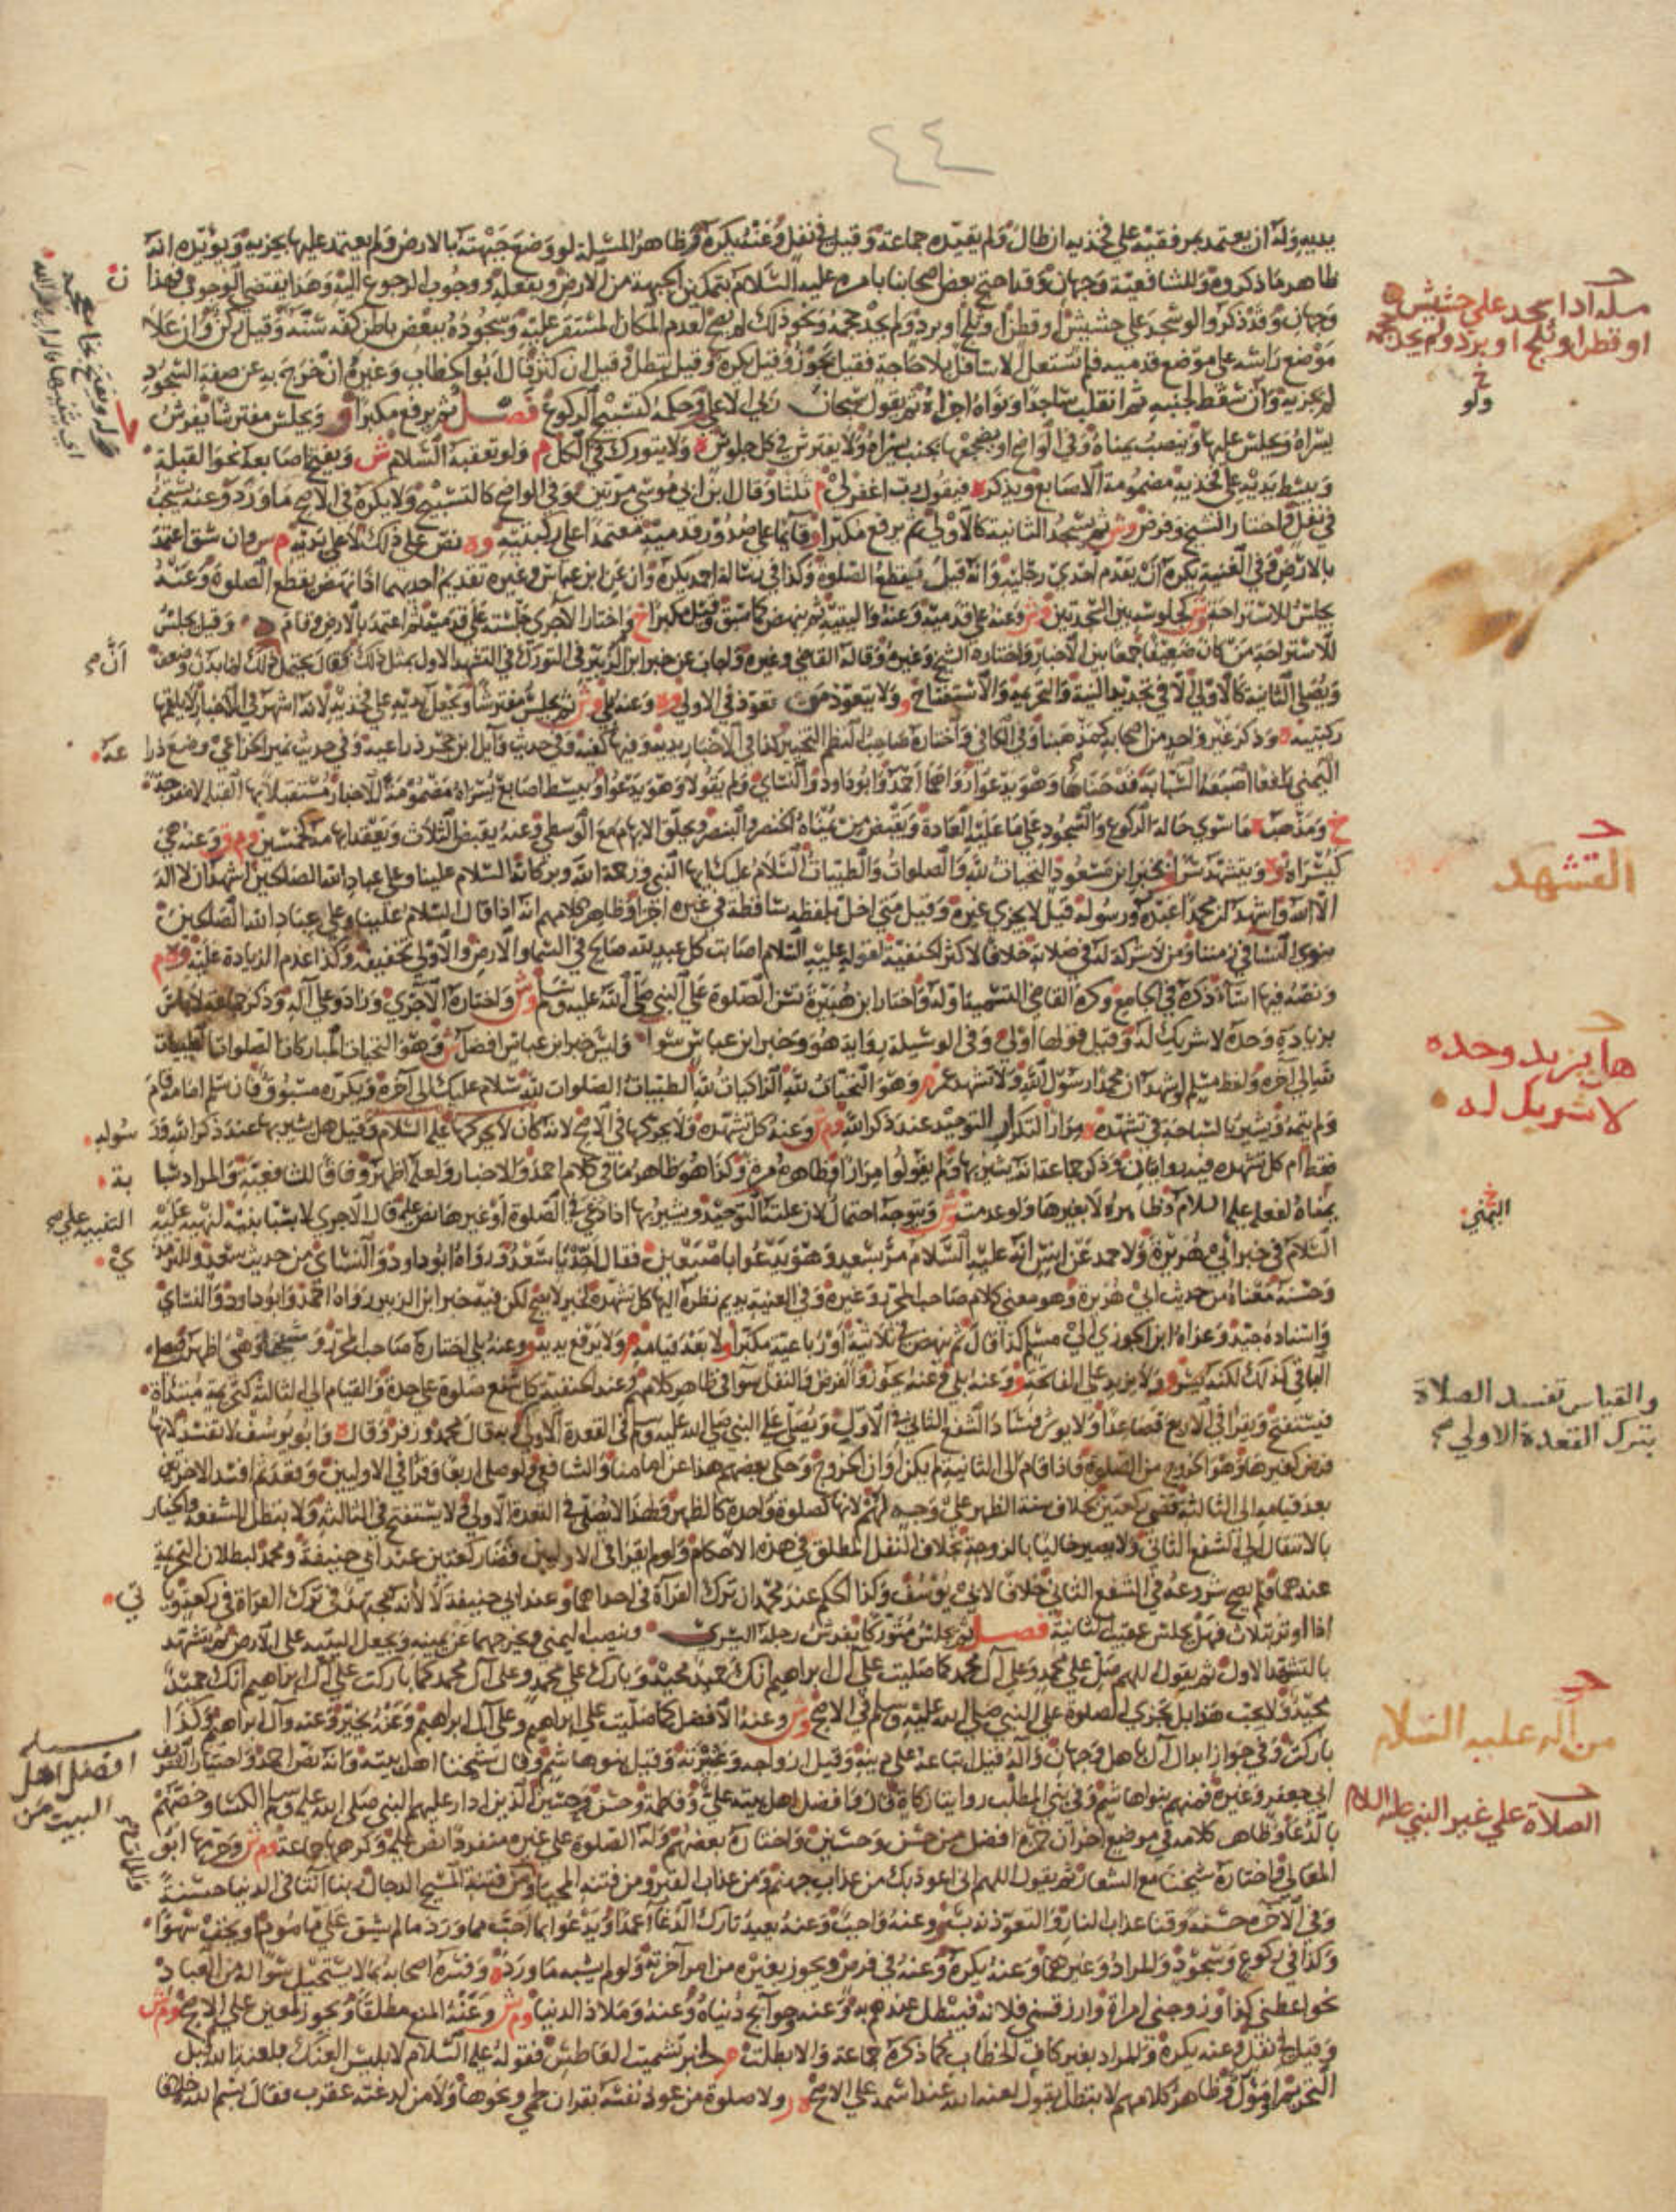 ٤٤
يديه وله أن يعتمد بمرفقيه على فخذيه ان طال ولم يقيده جماعة وقيل في نفل وعنه يكره وظاهر المسئلة لو وضع جبهته بالارض ولم يعتمد عليها يجزيه ويؤيده انه
ظاهر ما ذكروه وللشافعية وجهان وقد احتج بعض اصحابنا بامره عليه السلام بتمكين الجبهة من الارض وبفعله ووجوب الرجوع اليه وهذا يقتضي الوجوب فهذا
وجهان وقد ذكروا لو سجد على حشيش او قطن او ثلج او برد ولم يجد حجمه ونحو ذلك لم يصح لعدم المكان المستقر عليه وسجوده ببعض باطن كفه سنة وقيل ركن وان علا
موضع راسه على موضع قدميه فلم تستعل الاسافل بلا حاجة فقيل يجوز وقيل يكره وقيل تبطل وقيل ان كثر قال ابو الخطاب وغيره ان خرج به عن صفة السجود
لم يجزيه وان سقط لجنبه ثم انقلب ساجدا ونواه اجزاه ثم يقول سبحان ربي الاعلى وحكمه كتسبيح الركوع فصل ثم يرفع مكبرا و ويجلس مفترشا يفرش
يسراه ويجلس عليها وينصب يمناه وفي الواضح او يضجعها بجنب يسراه ولا يفترش في كل جلوس ه ولا يتورك في الكل م ولو تعقبه السلام ش ويفتح اصابعه نحو القبلة
ويبسط يديه على فخذيه مضمومة الاصابع ويذكر ه فيقول رب اغفر لي م ثلثا وقال ابن ابي موسى مرتين وفي الواضح كالتسبيح ولا يكره في الاصح ما ورد وعنه يستحب
في نفل واختار الشيخ وفرض وش ثم يسجد الثانية كالاولى ثم يرفع مكبرا و قائما على صدور قدميه معتمدا على ركبتيه وه نص على ذلك لا على يديه م ش وان شق اعتمد
بالارض وفي الغنية يكره ان يقدم احدى رجليه وانه قيل يقطع الصلوة وكذا في رسالة احمد يكره وان عن ابن عباس وغيره تقديم احديهما اذا نهض يقطع الصلوة وعنه
يجلس للاستراحة وش كجلوسه بين السجدتين وش وعنه على قدميه وعنه واليتيه ثم ينهض كما سبق وقيل مكبرا خ واختار الآجري جلسته على قدميه ثم اعتمد بالارض وقام وقيل يجلس
للاستراحة من كان ضعيفا جمعا بين الاخبار واختاره الشيخ وغيره وقاله القاضي وغيره واجاب عن خبر ابن الزبير في التورك في التشهد الاول بمثل ذلك فقال يحتمل ذلك لما بدن وضعف
ويصلي الثانية كالاولى الا في تجديد النية والتحريمة والاستفتاح و ولا يتعوذ من تعوذ في الاولى وه وعنه بلى وش ثم يجلس مفترشا ويجعل يديه على فخذيه لانه اشهر في الاخبار لا يلقمها
ركبتيه وذكر غير واحد من اصحابه كمذهبنا وفي الكافي واختاره صاحب النظم التخيير
اليمنى رافعا اصبعه السبابة قد حناها وهو يدعو رواهما احمد وابو داود والنساي ولم يقولا وهو يدعو ويبسط اصابع يسراه مضمومة للاخبار مستقبلا بها القبلة لا مفرجة
خ ومذهب ه ما سوى حالة الركوع والسجود على ما عليه العادة ويقبض من يمناه الخنصر والبنصر ويحلق الابهام مع الوسطى وعنه يقبض الثلاث ويعقد ابهامه كخمسين وم ر وعنه هي
كيسراه وه ويتشهد سرا و بخبر ابن مسعود التحيات لله والصلوات والطيبات السلام عليك ايها النبي ورحمة الله وبركاته السلام علينا وعلى عباد الله الصالحين اشهد ان لا اله
الا الله واشهد ان محمدا عبده ورسوله قيل لا يجزي غيره وقيل متى اخل بلفظة ساقطة في غيره اجزا وظاهر كلامهم انه اذا قال السلام علينا وعلى عباد الله الصالحين
ينوي النسا في زمننا ومن لا شركة له في صلاته خلافا لاكثر الحنفية لقوله عليه السلام اصابت كل عبد لله صالح في السماء والارض والاولى تخفيفه وكذا عدم الزيادة عليه وه م
ونصه فيها اساء ذكره في الجامع وكره القاضي التسمية اوله واختار ابن هبيرة تسن الصلوة على النبي صلى الله عليه وسلم وش واختاره الآجري وزاد وعلى آله وذكر جماعة لا باس
بزيادة وحده لا شريك له وقيل قولها اولى وفي الوسيلة رواية هو وخبر ابن عباس سوا وليس خبر ابن عباس افضل ش وهو التحيات المباركات الصلوات الطيبات
لله الى آخره ولفظ مسلم واشهد ان محمدا رسول الله ولا تشهد عمر م وهو التحيات لله الزاكيات لله الطيبات الصلوات لله سلام عليك الى آخره ويكرره مسبوق فان سلم امامه قام
ولم يتمه ويشير بالسباحة في تشهده ه مرارا لتكرار التوحيد عند ذكر الله وم ش وعنه كل تشهده ولا يحركها في الاصح لانه كان لا يحركها عليه السلام وقيل هل يشير بها عند ذكر الله وذكر
فقط ام كل تشهده فيه روايتان وذكر جماعة انه يشير بها ولم يقولوا مرارا وظاهره مرة وكذا هو ظاهر ما في كلام احمد والاخبار ولعله اظهر وفاقا للشافعية والمراد سبا
يمناه لفعله عليه السلام وظاهره لا بغيرها ولو عدمت وش ويتوجه احتمال لان علته التنبيه على التوحيد ويشير بها اذا دعى في الصلوة او غيرها نص عليه وقال الآجري لا بسبابتيه لنهيه عليه
السلام في خبر ابي هريرة ولاحمد عن انس انه عليه السلام مر بسعد وهو يدعو باصبعين فقال احد يا سعد ورواه ابو داود والنساي من حديث سعد والترمذ
وحسنه معناه من حديث ابي هريرة وهو معنى كلام صاحب المحرر وغيره وفي الغنية يديم نظره اليها كل تشهده لخبر لا يصح لكن فيه خبر ابن الزبير رواه احمد وابو داود والنساي
واسناده جيد وعزاه ابن الجوزي الى مسلم كذا قال ثم ينهض في ثلاثية او رباعية مكبرا و لا بعد قيامه م ولا يرفع يديه و وعنه بلى اختاره صاحب المحرر وشيخنا وهي اظهر فيصلي
الباقي كذلك لكنه يسر و ولا يزيد على الفاتحة و وعنه بلى وعنه يجوز والفرض والنفل سوا في ظاهر كلامهم وعند الحنفية كل شفع صلوة على حدة والقيام الى الثالثة كتحريمة مبتدأة
فيستفتح ويقرا في الاربع قصاعدا ولا يوثر فساد الشفع الثاني في الاول ويصلي على النبي صلى الله عليه وسلم في القعدة الاولى وبه قال محمد وزفر وقال ه وابو يوسف لا تفسد لانها
فرض لغيرها وهو الخروج من الصلوة فاذا قام الى الثانية لم يكن اوان الخروج وحكى بعضهم هذا عن امامنا والشافعي ولو صلى اربعا وقرا في الاوليين وقعد ثم افسد الاخريين
بعد قيامه الى الثالثة قضى ركعتين بخلاف سنة الظهر على وجه لهم لانها كصلوة واحدة كالظهر ولهذا لا يصلي في القعدة الاولى ولا يستفتح في الثالثة ولا تبطل الشفعة والخيار
بالانتقال الى الشفع الثاني ولا يصير خاليا بالزوجة بخلاف النفل المطلق في هذه الاحكام ولو لم يقرا في الاوليين قضا ركعتين عند ابي حنيفة ومحمد لبطلان التحريمة
عندهما فلم يصح شروعه في الشفع الثاني خلافا لابي يوسف وكذا الحكم عند محمد ان ترك القراة في احداهما وعند ابي حنيفة لا
اذا اوتر بثلاث فهل يجلس عقيب الثانية فصل ثم يجلس متوركا يفرش رجله اليسرى وينصب اليمنى ويخرجهما عن يمينه ويجعل اليتيه على الارض ثم يتشهد
بالتشهد الاول ثم يقول اللهم صل على محمد وعلى آل محمد كما صليت على آل ابراهيم انك حميد مجيد وبارك على محمد وعلى آل محمد كما باركت على آل ابراهيم انك حميد
مجيد ولا يجب هذا بل تجزي الصلوة على النبي صلى الله عليه وسلم في الاصح وش وعنه الافضل كما صليت على ابراهيم وعلى آل ابراهيم وعنه يخير وعنه وآل ابراهيم وكذا
باركت وفي جواز ابدال آل باهل وجهان وآله قيل اتباعه على دينه وقيل ازواجه وعترته وقيل بنو هاشم وقال شيخنا اهل بيته وانه نص احمد واختيار الشريف
ابي جعفر وغيره فمنهم بنو هاشم وفي بني المطلب روايتا زكاة قال وافضل اهل بيته علي وفاطمة وحسن وحسين الذين ادار عليهم النبي صلى الله عليه وسلم الكسا وخصهم
بالدعا وظاهر كلامه في موضع آخر ان حمزة افضل من حسن وحسين واختاره بعضهم وله الصلوة على غيره منفردا نص عليه وكرهها جماعة وم ش وحرمها ابو
المعالي واختاره شيخنا مع الشعار ثم يقول اللهم اني اعوذ بك من عذاب جهنم ومن عذاب القبر ومن فتنة المحيا ومن فتنة المسيح الدجال ربنا آتنا في الدنيا حسنة
وفي الآخرة حسنة وقنا عذاب النار والتعوذ ندب و وعنه واجب وعنه يعيد تارك الدعا عمدا ويدعو بما احب مما ورد ما لم يشق على ماموم او يخف سهوا
وكذا في ركوع وسجود والمراد وغيرهما وعنه يكره وعنه في فرض ويجوز بغيره من امر آخرته ولو لم يشبه ما ورد ه وفسره اصحابه بما لا يستحيل سواله من العباد
نحو اعطني كذا وزوجني امراة وارزقني فلانة فيبطل عندهم به وعنه وحوائج دنياه وعنه وملاذ الدنيا وم ش وعنه المنع مطلقا ويجوز لمعين على الاصح وم ش
وقيل في نفل وعنه يكره والمراد بغير كاف الخطاب كما ذكره جماعة والا بطلت م لخبر تشميت العاطس وقوله عليه السلام لابليس العنك بلعنة الله قبل
التحريم او مؤول وظاهر كلامهم لا تبطل بقول لعنه الله عند اسمه على الاصح ه ر ولا صلوة من عوذ نفسه بقران لحمى ونحوها ولا من لدغته عقرب فقال بسم الله خلافا
مسئلة اذا سجد على حشيش
او قطن او ثلج او برد ولم يجد حجمه
خ
ولو
التشهد
هل يزيد وحده
لا شريك له
خ
اليمنى
والقياس تفسد الصلاة
بترك القعدة الاولى صح
من آله عليه السلام
الصلاة على غير النبي عليه السلام
افضل اهل
البيت من